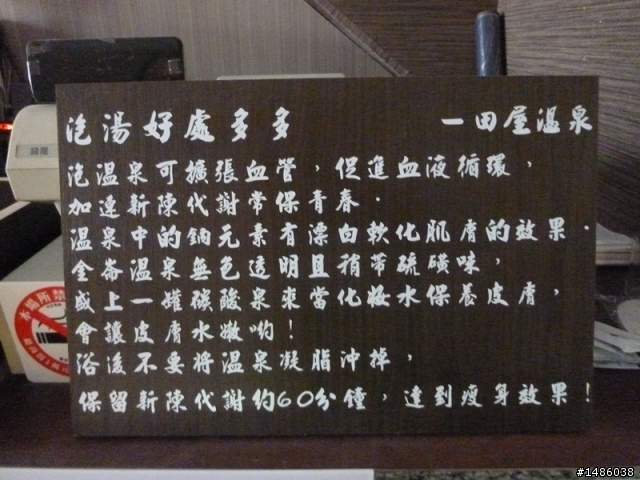 泡湯好處多多 一田屋溫泉
泡溫泉可擴張血管，促進血液循環，
加速新陳代謝常保青春．
溫泉中的鈉元素有漂白軟化肌膚的效果．
金崙溫泉無色透明且稍帶硫磺味，
盛上一罐碳酸泉來當化妝水保養皮膚，
會讓皮膚水嫩喲！
浴後不要將溫泉凝脂沖掉，
保留新陳代謝約60分鐘，達到瘦身效果！
本場所禁
#1486038